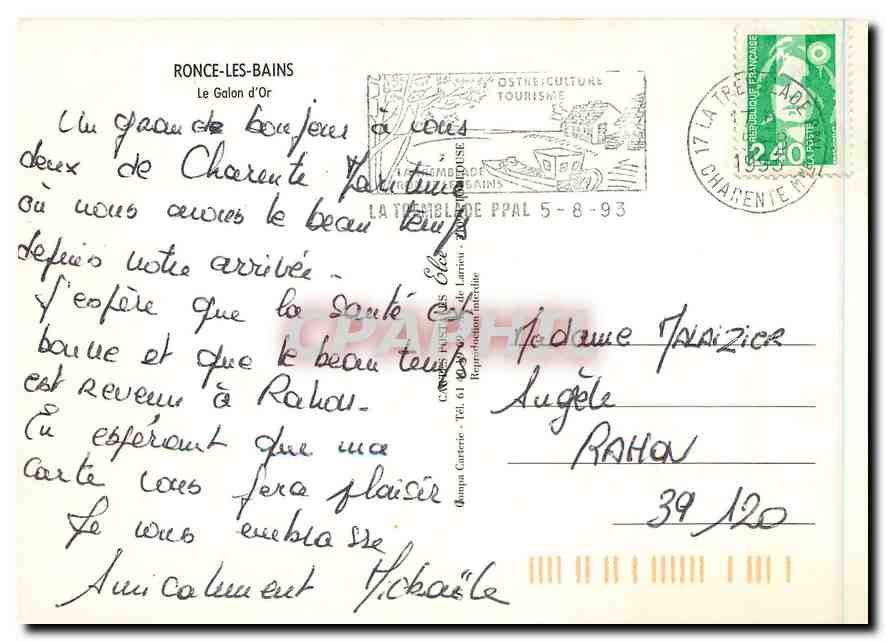 RONCE-LES-BAINS
Le Galon d'Or
Un grande bonjour à vous
deux de Charente Maritime
où nous avons le beau temps
depuis notre arrivée.
J'espère que la santé est
bonne et que le beau temps
est revenu à Rahon.
En espérant que ma
carte vous fera plaisir
Je vous embrasse
Amicalement Mickaële
OSTREICULTURE
TOURISME
LA TREMBLADE
RONCE-LES-BAINS
LA TREMBLADE PPAL 5-8-93
17 LA TREMBLADE
1993
CHARENTE MME
REPUBLIQUE FRANÇAISE
2,40
LA POSTE
CARTES POSTALES Elcé
Reproduction interdite
CPARAMA
Madame MALAIZIER
Angèle
RAHON
39 120